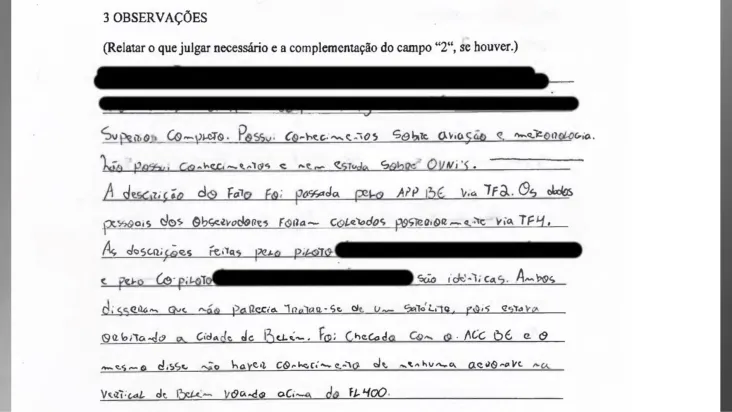 3 OBSERVAÇÕES
(Relatar o que julgar necessário e a complementação do campo “2“, se houver.)
Superior Completo. Possui conhecimentos sobre aviação e metorologia.
Não possui conhecimentos e nem estuda sobre OVNi's.
A descrição do Fato foi passada pelo APP BE via TF2. Os dados
pessoais dos observadores foram coletados posteriormente via TF4.
As descrições feitas pelo piloto
e pelo Co-piloto são idênticas. Ambos
disseram que não parecia tratar-se de um satélite, pois estava
orbitando a cidade de Belém. Foi checado com o ACC BE e o
mesmo disse não haver conhecimento de nenhuma aeronave na
vertical de Belém voando acima do FL400.